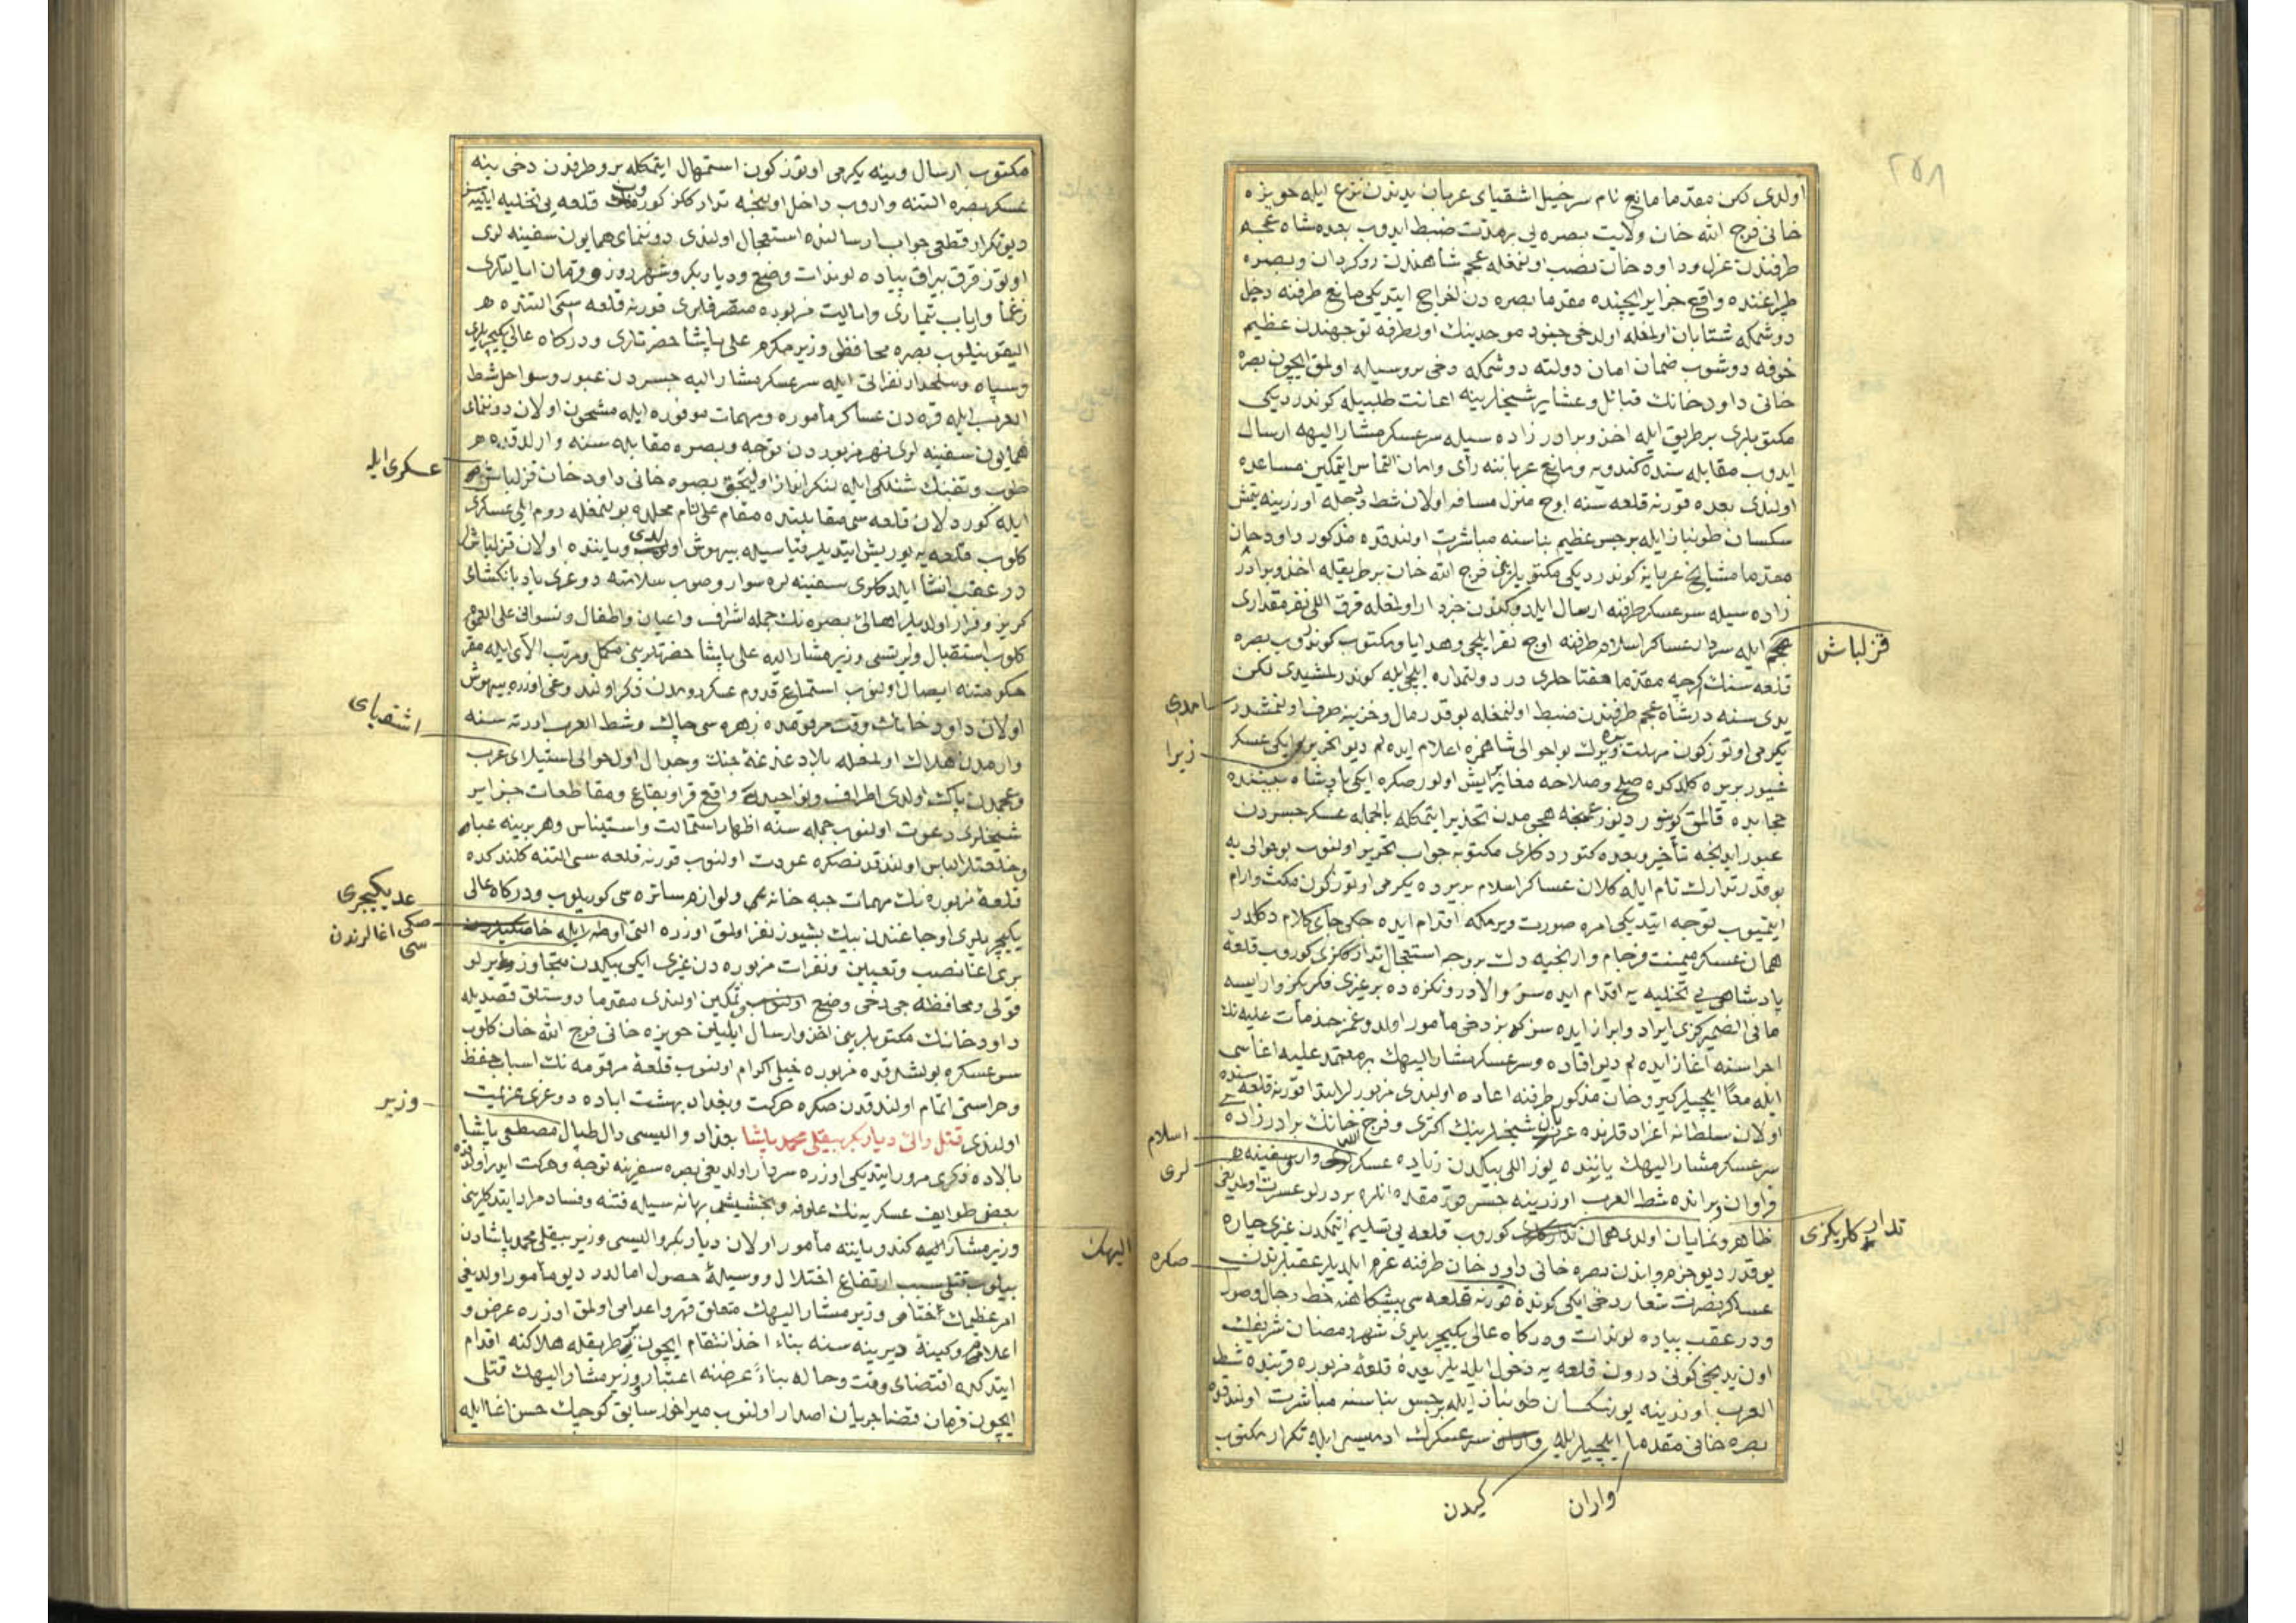 ٢٥٨
اولدی لكن مقدما مانع نام سرخیل اشقیای عربان یدندن نزع ایله حویزه
خانی فرج الله خان ولایت بصره یی بر مدت ضبط ایدوب بعده شاه عجم
طرفندن عزل و داود خان نصب اولنمغله عجم شاهندن روكردان و بصره
طپراغنده واقع جزایر ایچنده مقدما بصره دن اخراج ایتدیكی مانع طرفنه دخیل
دوشمكله شتابان اولمغله اولدخی جنود موحدینك اولطرفه توجهندن عظیم
خوفه دوشوب ضمان امان دولته دوشمكله دخی بر وسیله اولمق ایچون بصره
خانی داود خانك قبائل و عشایر شیخلرینه اعانت طلبیله كوندردیكی
مكتوبلری بر طریق ایله اخذ و برادر زاده سیله سرعسكر مشار الیهه ارسال
ایدوب مقابله سنده كندویه و مانع عرباننه رأی و امان التماس ایتمكین مساعده
اولندی بعده قورنه قلعه سنه اوچ منزل مسافه اولان شط دجله اوزرینه یتمش
سكسان طونباز ایله بر جسر عظیم بناسنه مباشرت اولندقده مذكور داود خان
مقدما مشایخ عربانه كوندردیكی مكتوبلرینی فرج الله خان بر طریقله اخذ و برادر
زاده سیله سرعسكر طرفنه ارسال ایلدوكندن خبردار اولمغله قرق اللی نفر مقداری
عجم ایله سردار عساكر اسلام طرفنه اوچ نفر ایلچی و هدایا و مكتوب كوندروب بصره
قزلباش
قلعه سنك اكرچه مقدما مفتاحلری در دولتمداره ایلچی ایله كوندرلمشیدی لكن
یدی سنه در شاه عجم طرفندن ضبط اولنمغله بو قدر مال و خزینه صرف اولنمشدر
یكرمی اوتوز كون مهلت ویرك بو احوالی شاهمزه اعلام ایده لم دیو تحریر ایكی عسكر
زیرا
غیور بربره كلدكده صلح و صلاحه مغایر ایش اولور صكره ایكی پادشاه بیننده
عبور ایدنجه تأخیر و بعده كتوردكلری مكتوبه جواب تحریر اولنوب بو حوالی یه
بو قدر تدارك تام ایله كلان عساكر اسلام بر یرده یكرمی اوتوز كون مكث و آرام
ایتمیوب توجه ایتدیكی امره صورت ویرمكه اقدام ایده جكی جای كلام دكلدر
همان عسكر میمنت فرجام وارنجیه دك بر وجه استعجال تدارككزی كوروب قلعۀ
پادشاهی یی تخلیه یه اقدام ایده سز و الا درونكزده ده بر غیری فكركز وار ایسه
ما فی الضمیركزی ایراد و ابراز ایده سز كه بز دخی مأمور اولدوغمز خدمات علیه نك
اجراسنه آغاز ایده لم دیو افاده و سرعسكر مشار الیهك بر معتمد علیه اغاسی
ایله معا ایلچیلر كیرو خان مذكور طرفنه اعاده اولندی
اولان سلطانه اعزاد قلرنده عربان شیخلرینك اكثری و فرج الله خانك برادر زاده
سرعسكر مشار الیهك یاننده یوز اللی بیكدن زیاده عسكر
اسلام
لری
فراوان و بر انده شط العرب اوزرینه جسر
ظاهر و نمایان اولدی همان كوروب قلعه یی تسلیم ایتمكدن غیری چاره
تداركلریكزی
یوقدر دیو جزم و اندن بصره خانی داود خان طرفنه عزم ایلدیلر عقبلرندن
صكره
عساكر نصرت شعار دخی ایكی كونده قورنه قلعه سی پیشكاهنه حط رحال وصول
و در عقب پیاده لوندات و دركاه عالی یكیچریلری شهر رمضان شریفك
اون یدنجی كونی درون قلعه یه دخول ایلدیلر بعده قلعۀ مزبوره قربنده شط
العرب اوزرینه یوز سكسان طونباز ایله بر جسر بناسنه مباشرت اولندقده
بصره خانی مقدما ایلچیلر ایله سرعسكرك ادمیسی ایله تكرار مكتوب
واران
كیدن
مكتوب ارسال و ینه یكرمی اوتوز كون استمهال ایتمكله بروطرفدن دخی ینه
عسكر بصره التنه واروب داخل اولنجه تداركلركز كوروب قلعه یی تخلیه ایلیه سز
دیو تكرار قطعی جواب ارسالنده استعجال اولندی دوننمای همایون سفینه لری
اوتوز قرق بیراق پیاده لوندات وضع و دیاربكر و شهرزور و قرمان ایالتلری
زعما و ارباب تیماری و ایالت مزبوره متصرفلری قورنه قلعه سی التنده
الیقونیلوب بصره محافظی وزیر مكرم علی پاشا حضرتلری و دركاه عالی یكیچریلری
و سپاه و سلحدار نفراتی ایله سرعسكر مشار الیه جسردن عبور و سواحل شط
العرب ایله قره دن عساكر مأموره و مهمات موفوره ایله مشحون اولان دوننمای
همایون سفینه لری نهر مزبوردن توجه و بصره مقابله سنه وارلدقده
طوپ و تفنك شنلكی ایله لنكر انداز اولیجق بصره خانی داود خان قزلباش
عسكری ایله
ایله كوردلان قلعه سی مقابلنده مقام علی نام محلده بولنمغله روم ایلی عسكری
كلوب قلعه یه یوریش ایتدیلر قیاسیله بیهوش اولدی و یاننده اولان قزلباش
در عقب انشا ایلدكلری سفینه لره سوار و صوب سلامته دوغری بادبانكشای
كریز و فرار اولدیلر اهالئ بصره نك جمله اشراف و اعیان و اطفال و نسوانی علی العموم
كلوب استقبال و ایرتسی وزیر مشار الیه علی پاشا حضرتلرینی مكمل و مرتب الای ایله مقر
حكومتنه ایصال اولنوب استماع قدوم عسكر رومدن ذكر اولندوغی اوزره بیهوش
اولان داود خانك وقت مرقومده زهره سی چاك و شط العرب اورته سنه
اشقیای
وارمدن هلاك اولمغله بلا دغدغۀ جنك و جدال اول حوالی استیلای عرب
و عجمدن پاك اولدی اطراف و نواحیده واقع قرا و بقاع و مقاطعات جزایر
شیخلری دعوت اولنوب جمله سنه اظهار استمالت و استیناس و هر برینه عبا
و خلعتلر الباس اولندقدنصكره عودت اولنوب قورنه قلعه سی التنه كلندكده
قلعۀ مزبوره نك مهمات جبه خانه سی و لوازم سائره سی كوریلوب و دركاه عالی
عدد یكیچری
یكیچریلری اوجاغندن بیك بشیوز نفر اولمق اوزره التی اوطه ایله
صكی اغالرندن
بری اغا نصب و تعیین و نفرات مزبوره دن غیری ایكی بیكدن متجاوز یرلو
قولی و محافظه جی دخی وضع و تمكین اولندی مقدما دوستلق قصدیله
داود خانك مكتوبلرینی اخذ و ارسال ایلین حویزه خانی فرج الله خان كلوب
سرعسكره بولشدقده مزبوره خیلی اكرام اولنوب قلعۀ مرقومه نك اسباب حفظ
و حراستی اتمام اولندقدن صكره حركت و بغداد بهشت اباده دوغری عزیمت
وزیر
اولندی قتل والئ دیاربكر بیقلی محمد پاشا بغداد والیسی دال طبان مصطفی پاشا
بالاده ذكری مرور ایتدیكی اوزره سردار اولدیغی بصره سفرینه توجه و حركت ایدر اولدقده
بعض طوایف عسكریه نك علوفه و بخشیش بهانه سیله فتنه و فساد مراد ایتدكلرینی
وزیر مشار الیه كندو یاننه مأمور اولان دیاربكر والیسی وزیر بیقلی محمد پاشادن
الیهك
بیلوب قتلی سبب ارتفاع اختلال و وسیلۀ حصول امالدر دیو مأمور اولدیغی
امر عظیمك اختتامی وزیر مشار الیهك متعلق قهر و اعدامی اولمق اوزره عرض و
اعلام و كینۀ دیرینه سنه بناء اخذ انتقام ایچون بر طریقله هلاكنه اقدام
ایتدكده اقتضای وقت و حاله بناءً عرضنه اعتبار و وزیر مشار الیهك قتلی
ایچون فرمان قضا جریان اصدار اولنوب میراخور سابق كوچك حسن اغا ایله